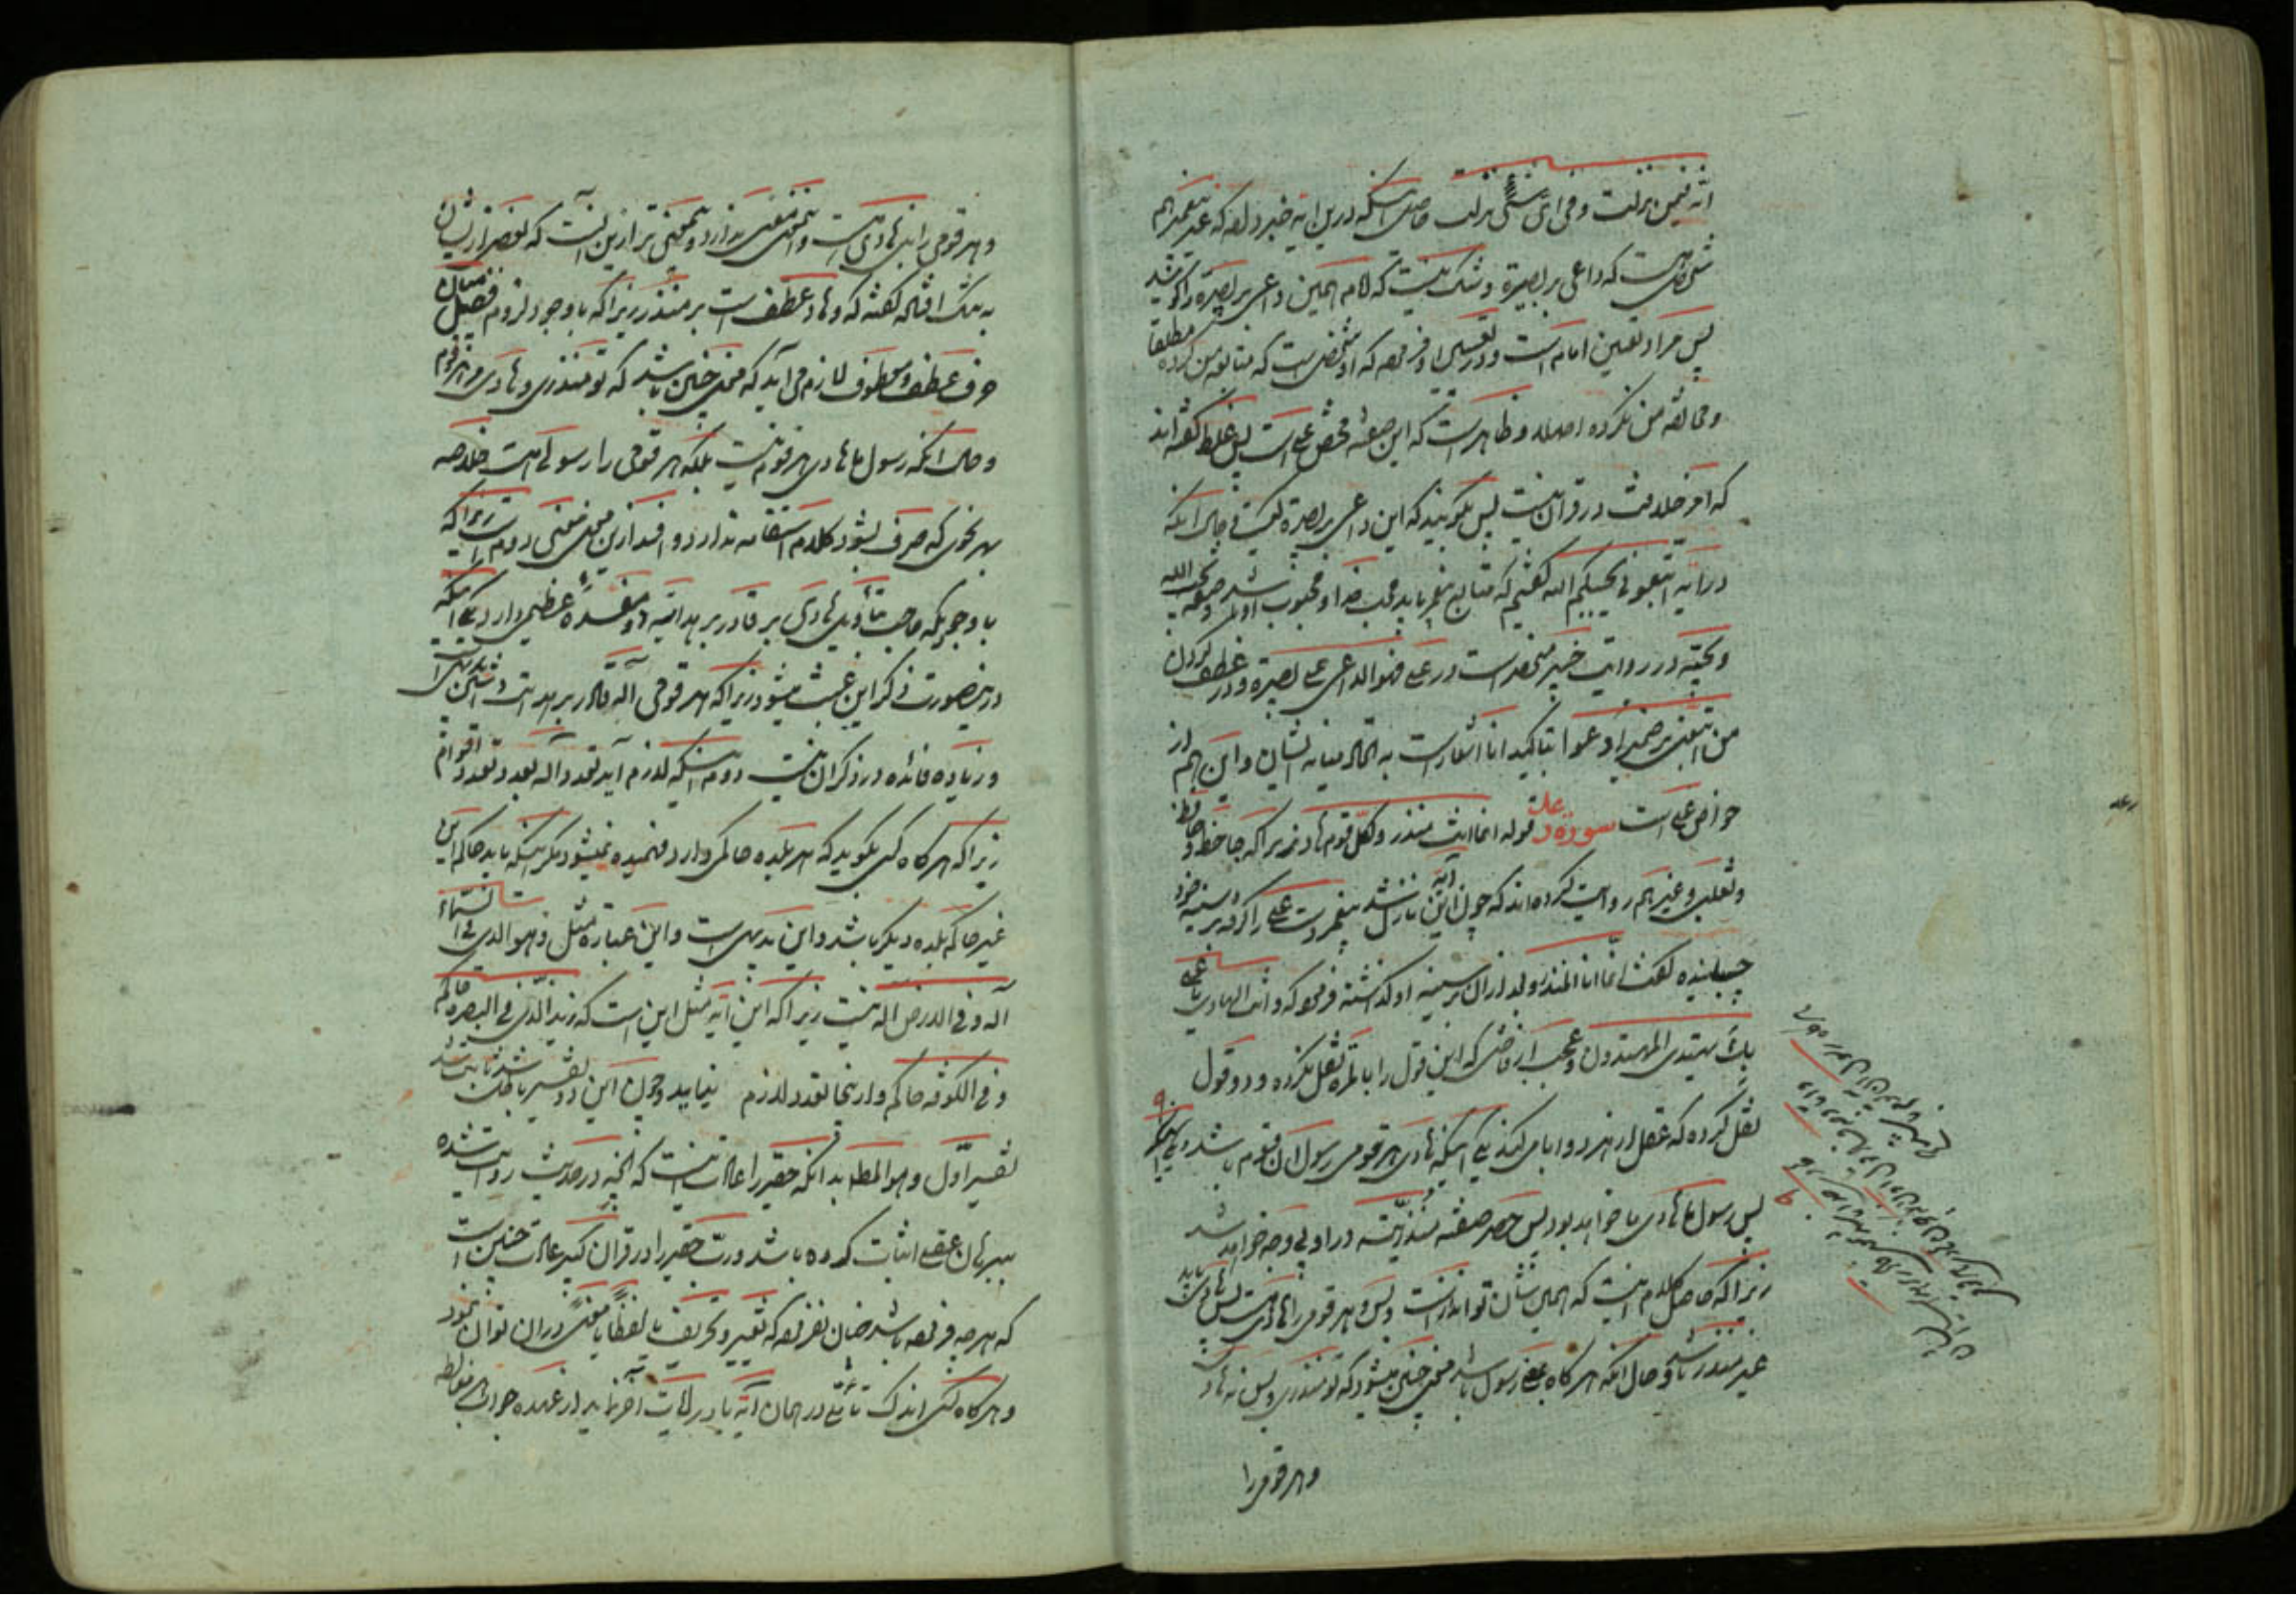 انّه فیمن نزلت و فی ای شیٔ نزلت حاصل آنکه درین آیه خبر داده که غیر پیغمبر هم
شخصی هست که داعی بر بصیرة و شک نیست که امام همین داعی بر بصیرة را گویند
پس مراد تعیین امام است و در تفسیر او فرموده که او شخصی است که متابعة من کرده مطلقا
و مخالفة من نکرده اصلا و ظاهر است که این صفة مخصوص علی است پس غلط گفته‌اند
که امر خلافت در قرآن نیست پس بگویند که این داعی بر بصیرة کیست و حال آنکه
در آیه اتبعونی یحببکم الله گفتیم که متابع پیغمبر باید محب خدا و محبوب او باشد و صفة یحب الله
و یحبه در روایت خیبر منحصر است در علی فهو الداعی علی بصیرة و در عطف کردن
من اتبعنی بر ضمیر ادعوا بتاکید انا اشعار است به اتحاد میانه ایشان و این هم از
خواص علی است سورة رعد قوله انما انت منذر و لکل قوم هاد زیرا که حافظ و
و ثعلبی و غیرهم روایت کرده‌اند که چون این آیه نازل شد پیغمبر دست علی را گرفته بر سینه خود
چسبانیده گفت انّما انا المنذر و بعد از آن بر سینه او گذاشته فرمود که و انت الهادی یا علی
بک یهتدی المهتدون و عجب از قاضی که این قول را بالمره نقل نکرده و دو قول
نقل کرده که عقل از هر دو ابا می‌کند یکی آنکه هادی هر قومی رسول آن قوم باشد
پس رسول ما هادی ما خواهد بود پس حصر صفة منذریّة در او بی وجه خواهد شد
زیرا که حاصل کلام اینست که همین شأن تو انذار است و بس و هر قومی را هادی هست پس هادی باید
غیر منذر باشد و حال آنکه هر گاه بمعنی رسول باشد معنی چنین میشود که تو منذری و بس نه هادی
و هر قومی را
و هر قومی را هادی هست و این معنی ندارد و بیمعنی‌تر ازین آنست که بعضی از ایشان
گفته که و هاد عطف است بر منذر زیرا که با وجود لزوم فصل میان
حرف عطف و معطوف لازم می‌آید که معنی چنین باشد که تو منذری و هادی هر قوم
و حال آنکه رسول ما هادی هر قوم نیست بلکه هر قومی را رسولی هست خلاصه
بهر نحوی که صرف شود کلام استقامه ندارد و افسد ازین معنی معنی دوم است زیرا که
با وجودیکه صاحب تأویل هادی بر قادر بر هدایة دو مفسدهٔ عظیمی دارد یکی آنکه
درینصورت ذکر این عبث میشود زیرا که هر قومی آله قادر بر هدایت داشتن بدیهی است
و زیاده فائده در ذکر آن نیست دوم آنکه لازم آید تعدد آله بعدد تعدد اقوام
زیرا که هر گاه کسی بگوید که هر بلده حاکمی دارد فهمیده نمیشود مگر اینکه باید حاکم این
غیر حاکم بلده دیگر باشد و این بدیهی است و این عبارة مثل و هو الذی فی السماء
آله و فی الارض اله نیست زیرا که این آیه مثل این است که زید الّذی فی البصره حاکم
و فی الکوفه حاکم و ازینجا تعدد لازم نمی‌آید و چون این دو تفسیر باطل شد ثابت شد
تفسیر اوّل و هو المط بدانکه حقیر را عادت اینست که آنچه در حدیث روایت شده
ببرهان عقلی اثبات کرده باشد و رب حقیر را در قرآن کبیر عادت چنین است
که هر چه فرموده باشد چنان نفرموده که تغییر و تحریف یا لفظاً یا معنیً در آن توان نمود
و هر گاه کسی اندک تأملی در همان آیه یا در آیات آخر نماید از عهده جواب هر مغالطه